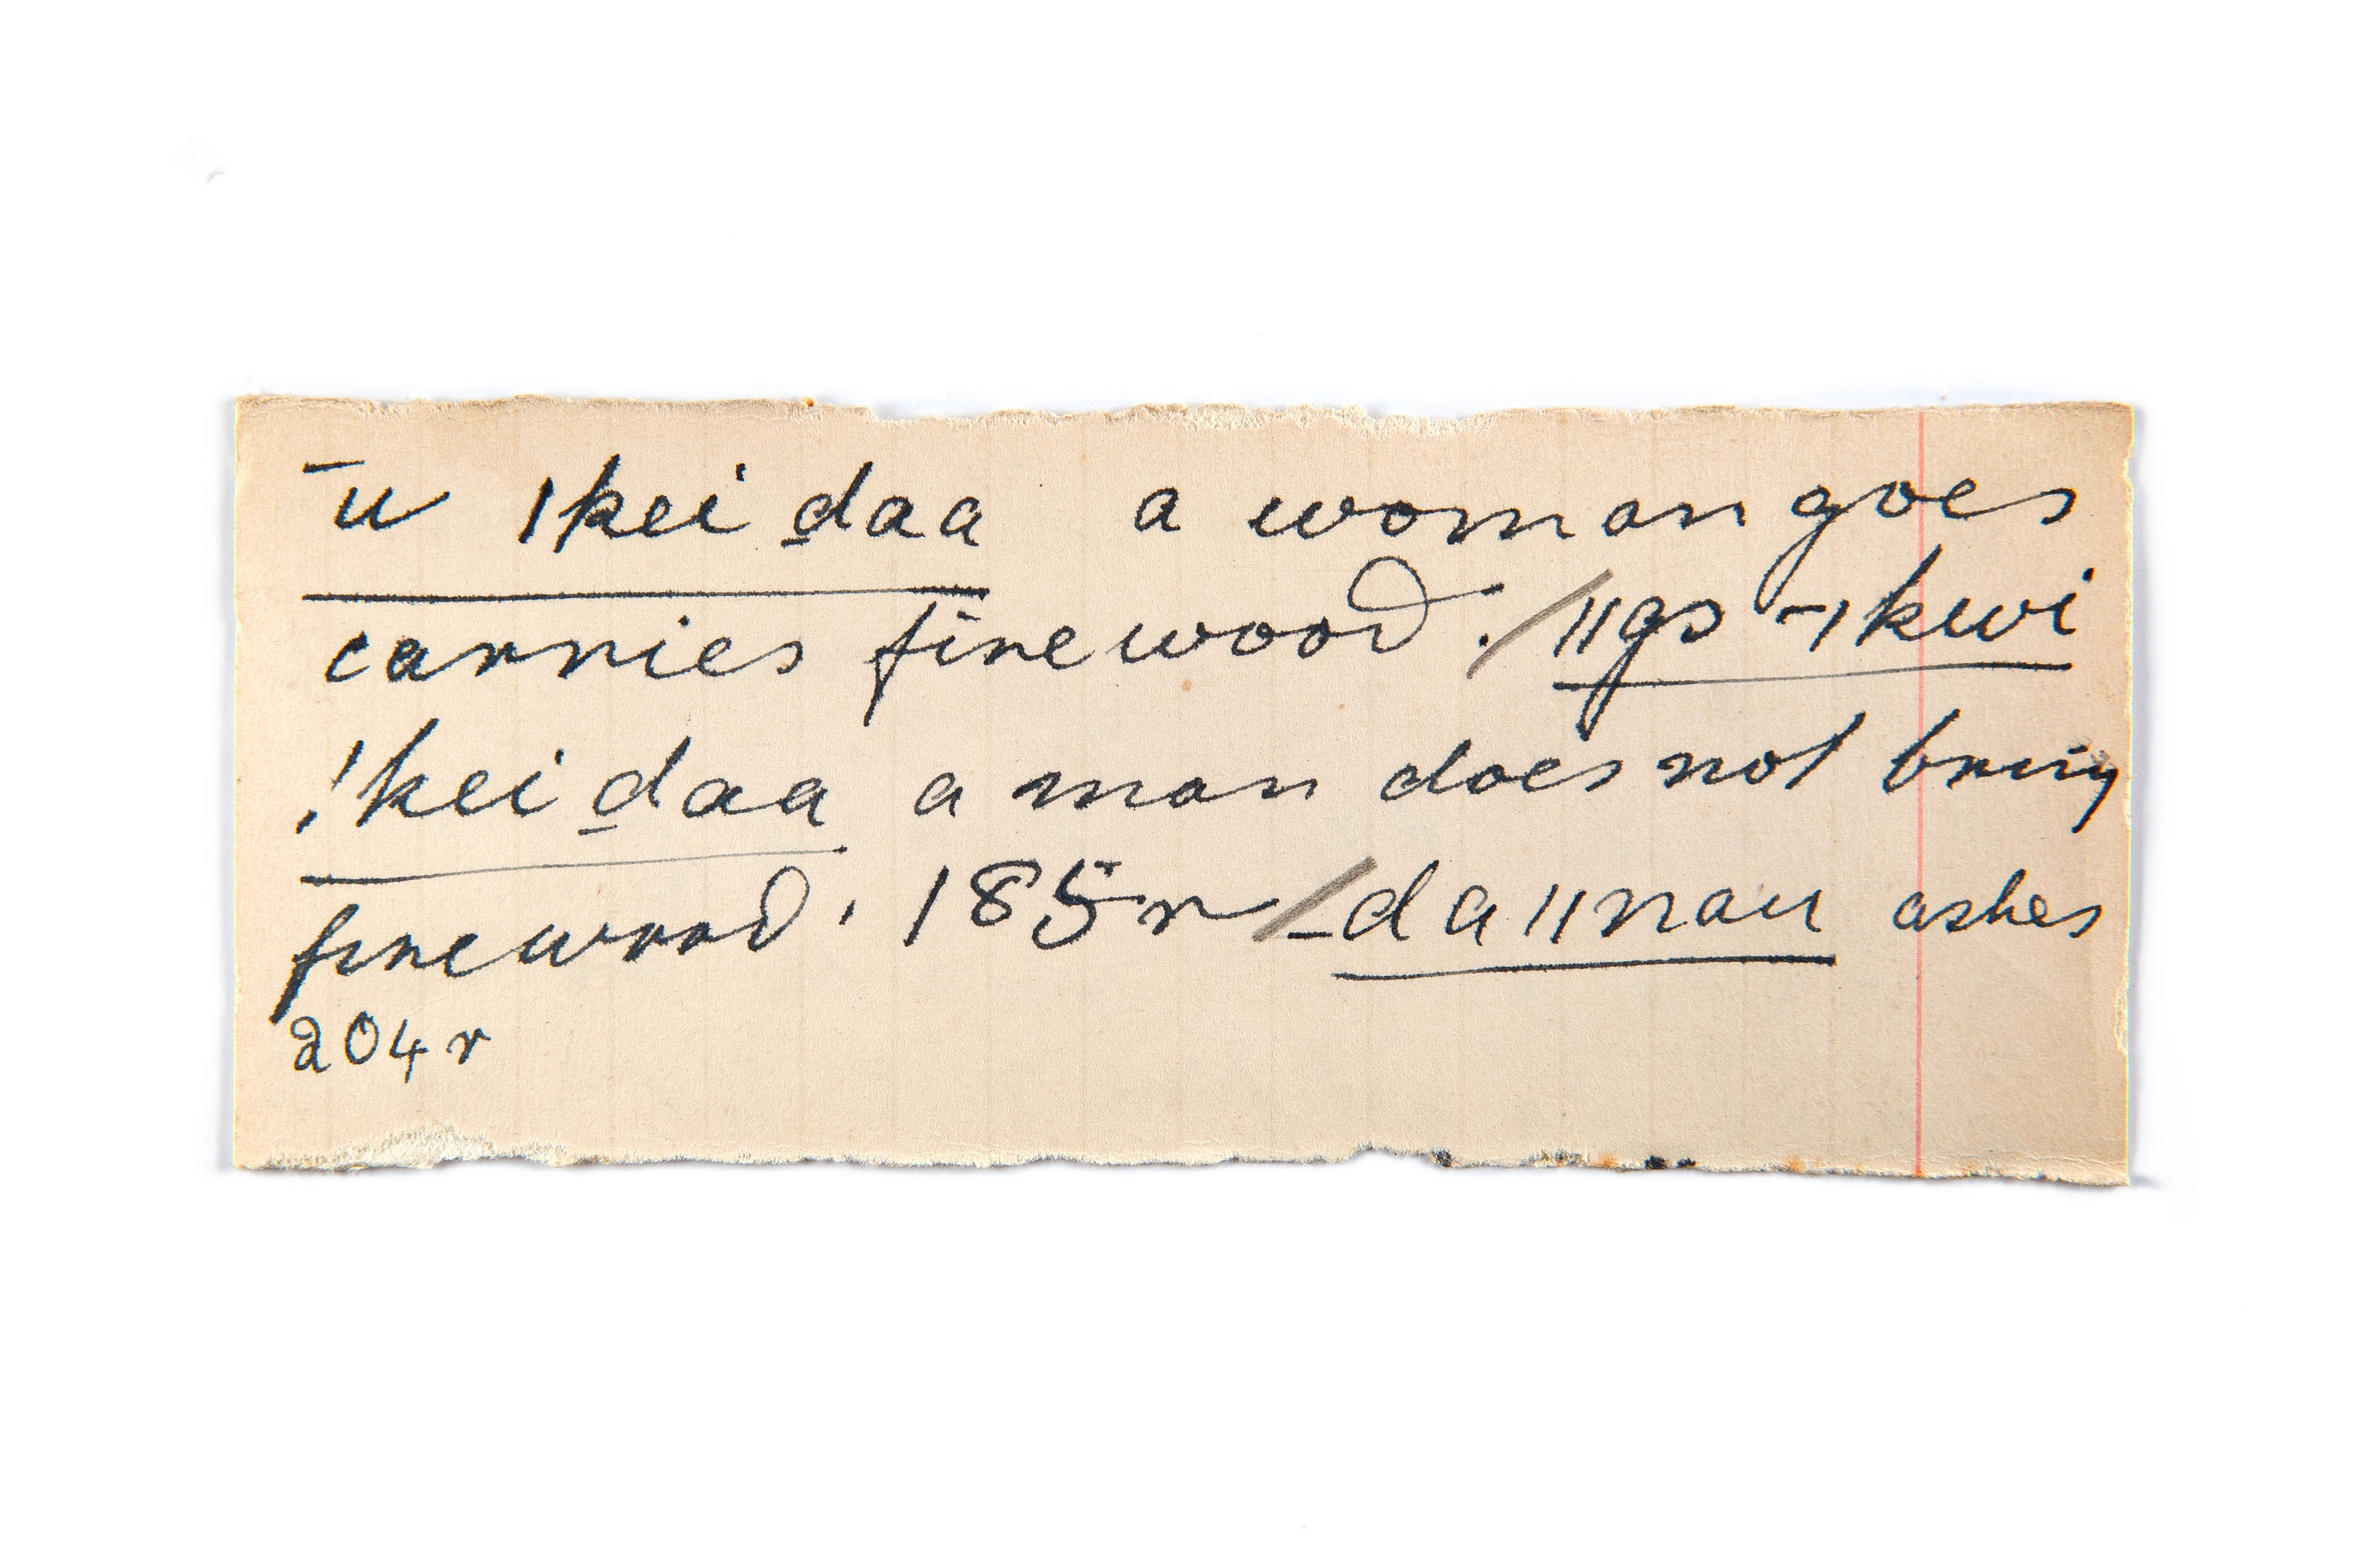 ‾u ǀkei d̲aa a woman goes
carries firewood. / ǁgo ‾ǀkwi
!kei d̲aa a man does not bring
firewood. 185r / _da ǁnau ashes
204r